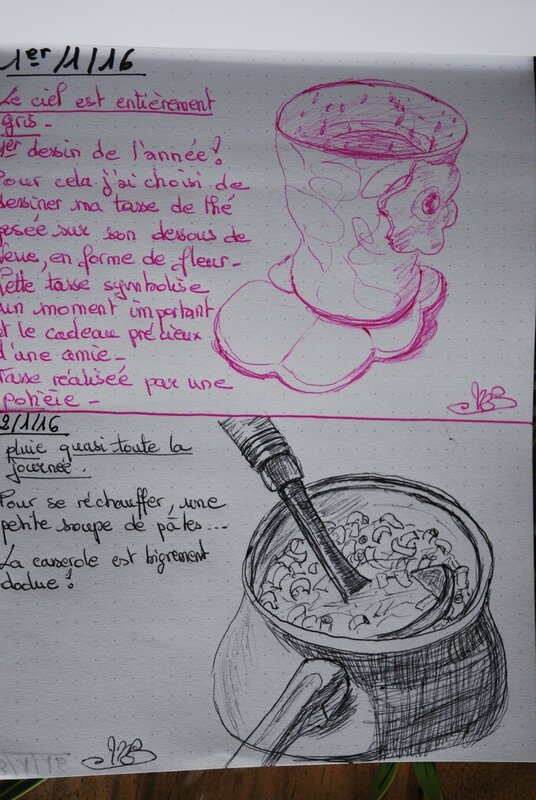 1er/1/16
Le ciel est entièrement
gris.
1er dessin de l'année!
Pour cela j'ai choisi de
dessiner ma tasse de thé
posée sur son dessous de
verre, en forme de fleur.
Cette tasse symbolise
un moment important
et le cadeau précieux
d'une amie.
Tasse réalisée par une
potière.
2/1/16
pluie quasi toute la
journée.
Pour se réchauffer, une
petite soupe de pâtes...
La casserole est bigrement
dodue!